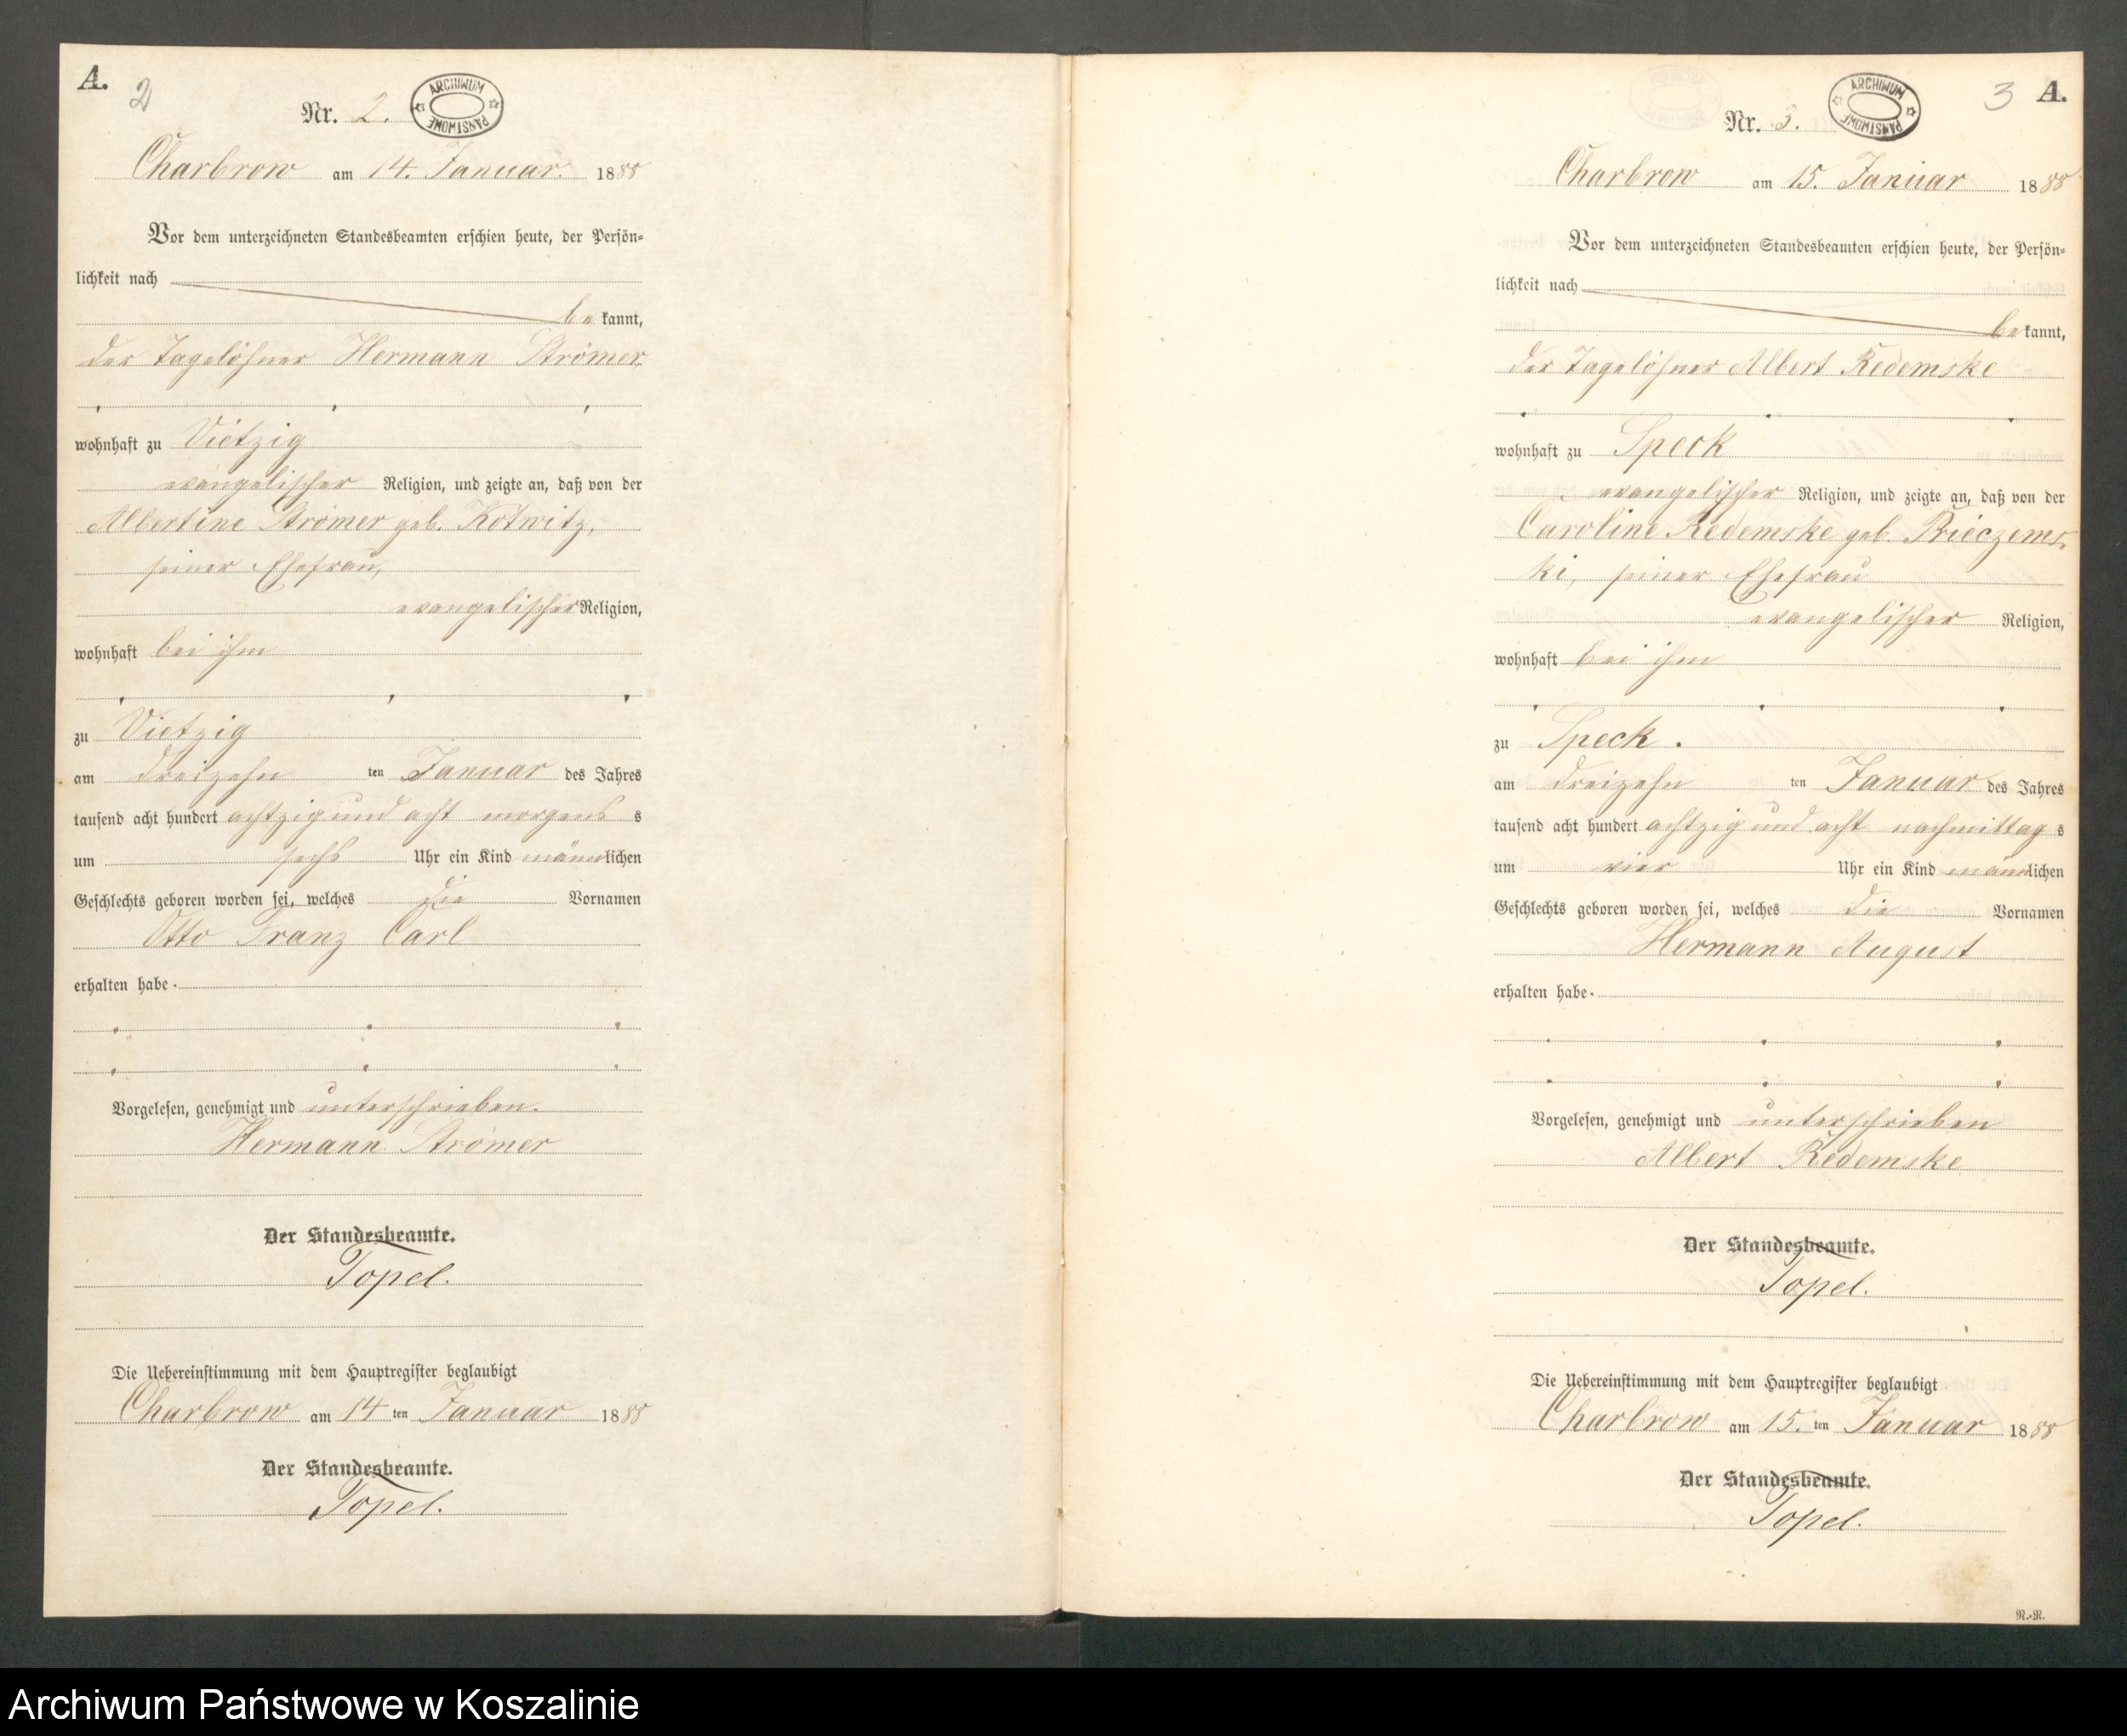 A.
2
Nr. 2.
ARCHIWUM PAŃSTWOWE
Charbrow am 14. Januar. 1888
Vor dem unterzeichneten Standesbeamten erschien heute, der Persön-
lichkeit nach
be kannt,
der Tagelöhner Hermann Strömer,
wohnhaft zu Vietzig
evangelischer Religion, und zeigte an, daß von der
Albertine Strömer geb. Kotwitz,
seiner Ehefrau,
evangelischer Religion,
wohnhaft bei ihm
zu Vietzig
am dreizehn ten Januar des Jahres
tausend acht hundert achtzig und acht morgens s
um sechs Uhr ein Kind männlichen
Geschlechts geboren worden sei, welches die Vornamen
Otto Franz Carl
erhalten habe.
Vorgelesen, genehmigt und unterschrieben.
Hermann Strömer
Der Standesbeamte.
Topel.
Die Uebereinstimmung mit dem Hauptregister beglaubigt
Charbrow am 14 ten Januar 1888
Der Standesbeamte.
Topel.
3 A.
Nr. 3.
ARCHIWUM PAŃSTWOWE
Charbrow am 15. Januar 1888
Vor dem unterzeichneten Standesbeamten erschien heute, der Persön-
lichkeit nach
be kannt,
der Tagelöhner Albert Redemske
wohnhaft zu Speck
evangelischer Religion, und zeigte an, daß von der
Caroline Redemske geb. Prieczems-
ki, seiner Ehefrau
evangelischer Religion,
wohnhaft bei ihm
zu Speck.
am dreizehn ten Januar des Jahres
tausend acht hundert achtzig und acht nachmittag s
um vier Uhr ein Kind männlichen
Geschlechts geboren worden sei, welches die Vornamen
Hermann August
erhalten habe.
Vorgelesen, genehmigt und unterschrieben
Albert Redemske
Der Standesbeamte.
Topel.
Die Uebereinstimmung mit dem Hauptregister beglaubigt
Charbrow am 15. ten Januar 1888
Der Standesbeamte.
Topel.
R.-R.
Archiwum Państwowe w Koszalinie